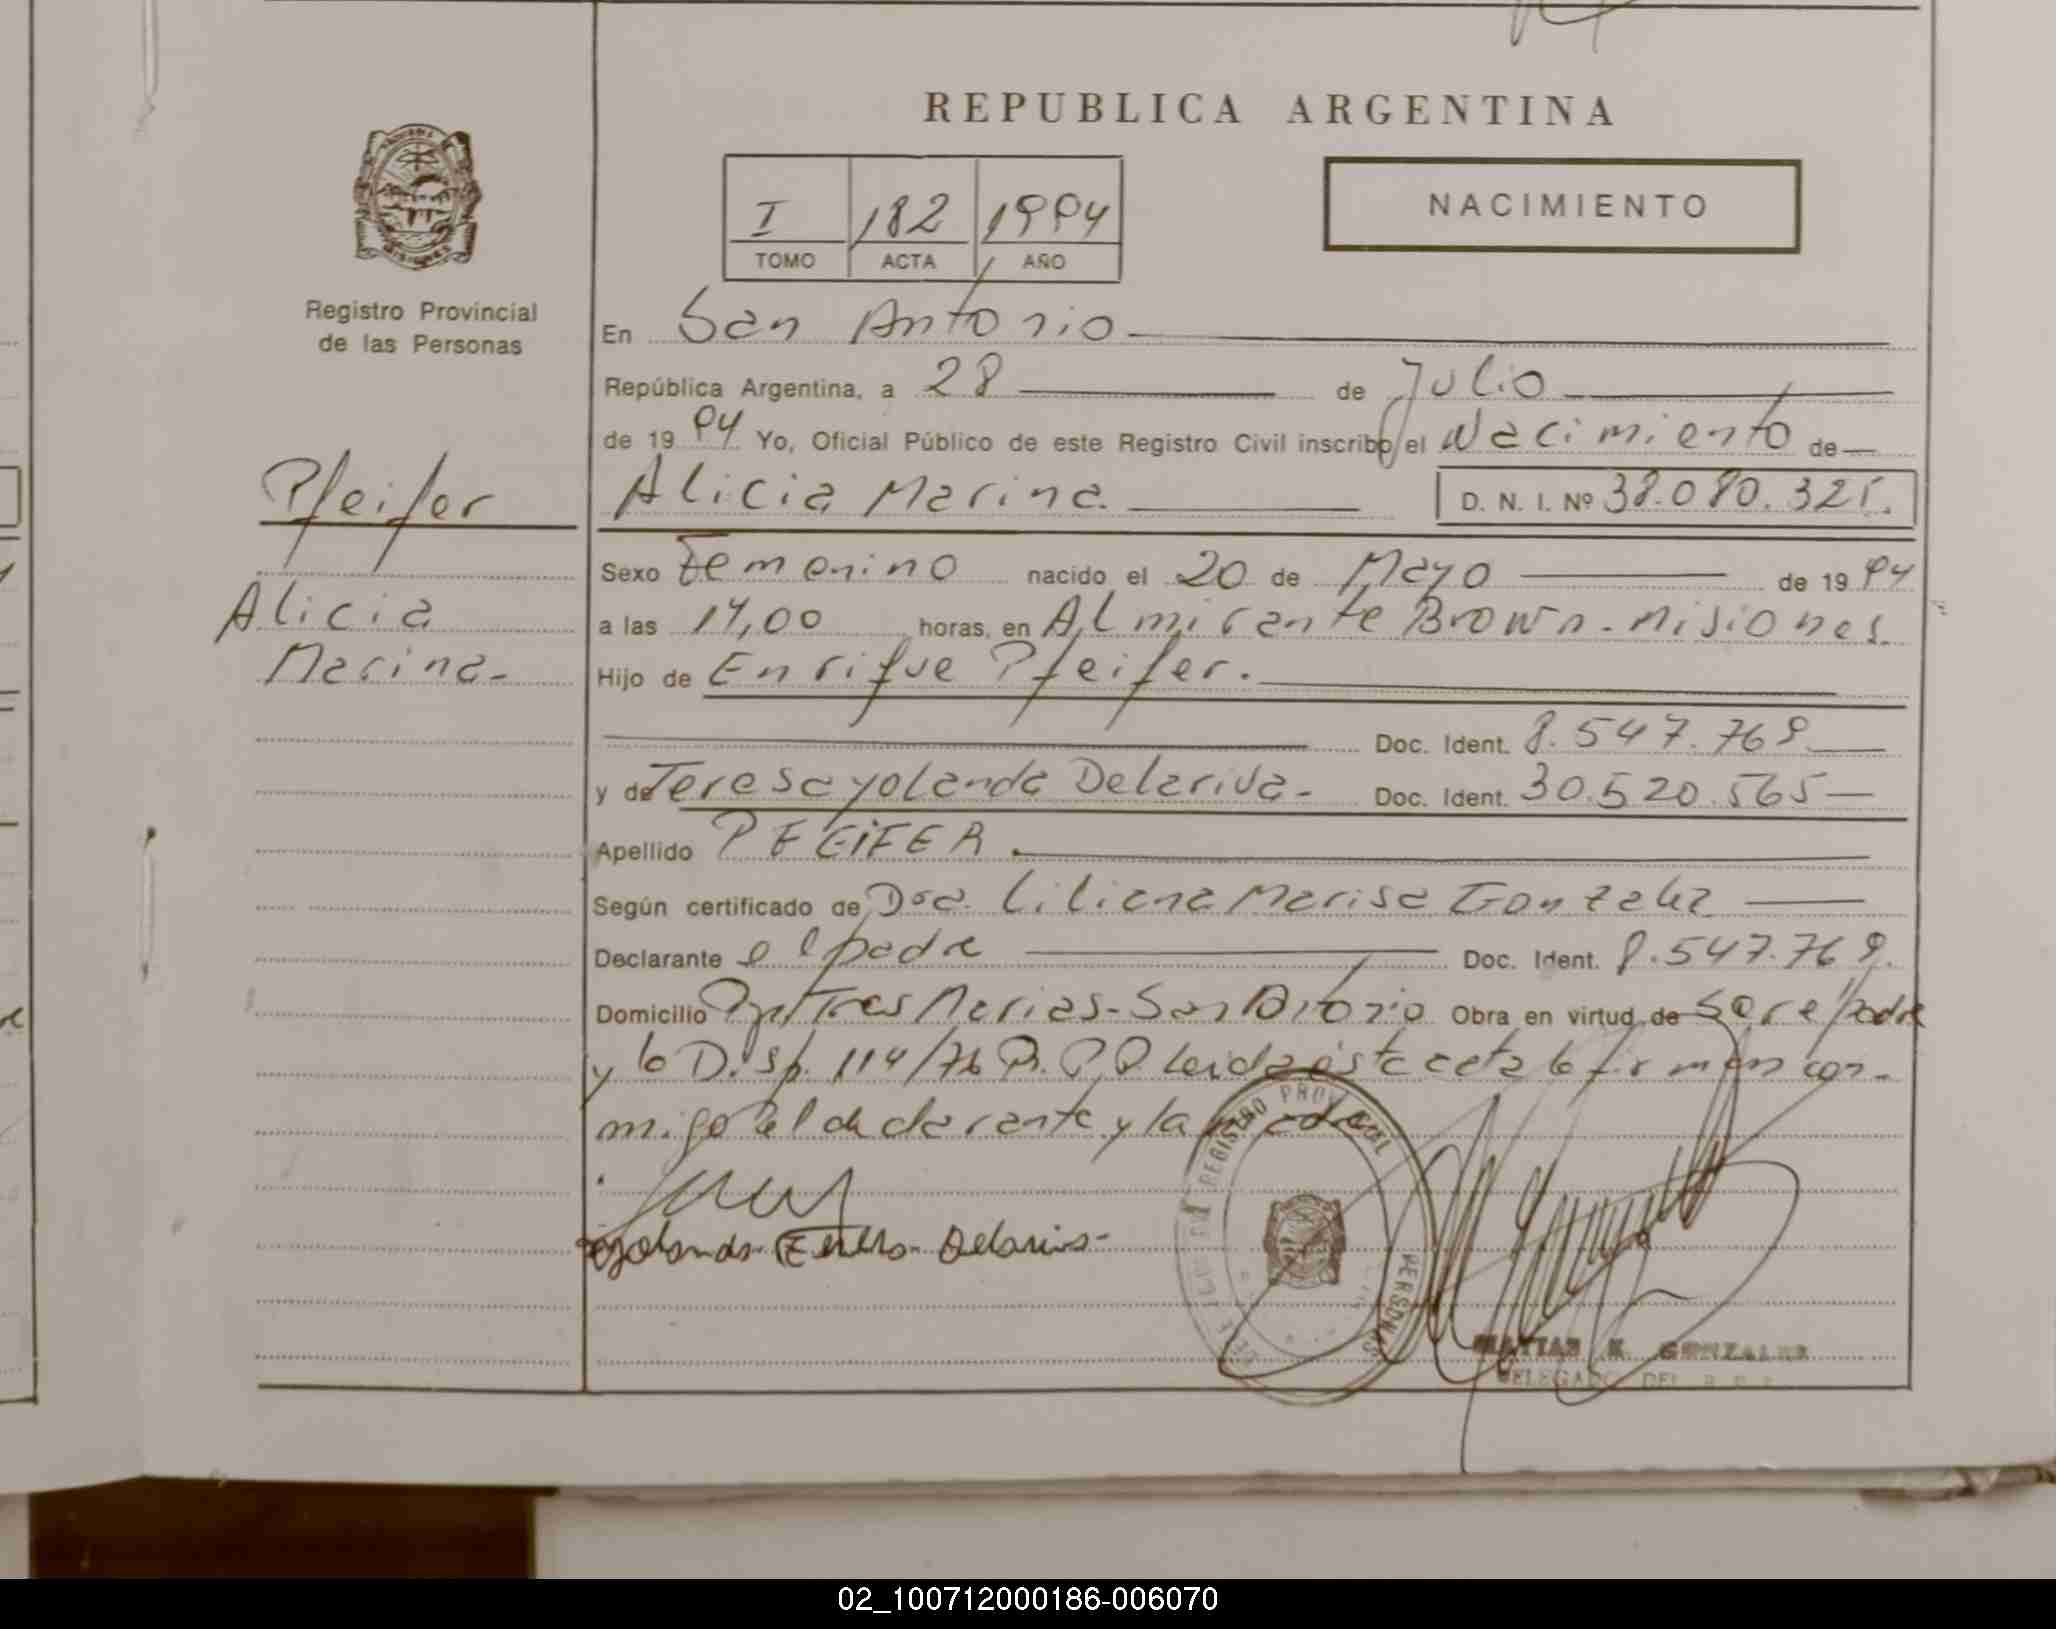 REPUBLICA ARGENTINA
NACIMIENTO
I 182 1994
TOMO ACTA AÑO
Registro Provincial
de las Personas
En San Antonio
República Argentina, a 28 de Julio
de 1994 Yo, Oficial Público de este Registro Civil inscribo el Nacimiento de
Pfeifer
Alicia
Marina.
Alicia Marina. D. N. I. Nº 38.080.325.
Sexo Femenino nacido el 20 de Mayo de 1994
a las 14,00 horas, en Almirante Brown - Misiones.
Hijo de Enrique Pfeifer.
Doc. Ident. 8.547.769
y de Teresa yolanda Delariva. Doc. Ident. 30.520.565
Apellido PFEIFER.
Según certificado de Dra. Liliana Marisa Gonzalez
Declarante el padre Doc. Ident. 8.547.769.
Domicilio Tres Marias - San Antonio Obra en virtud de ser el padre
y la Disp. 114/76 leida ésta acta la firman con-
migo el declarante y la madre
Delariva
REGISTRO PROVINCIAL
PERSONAS
MATIAS K. GONZALEZ
DELEGADO DEL R. P. P.
02_100712000186-006070